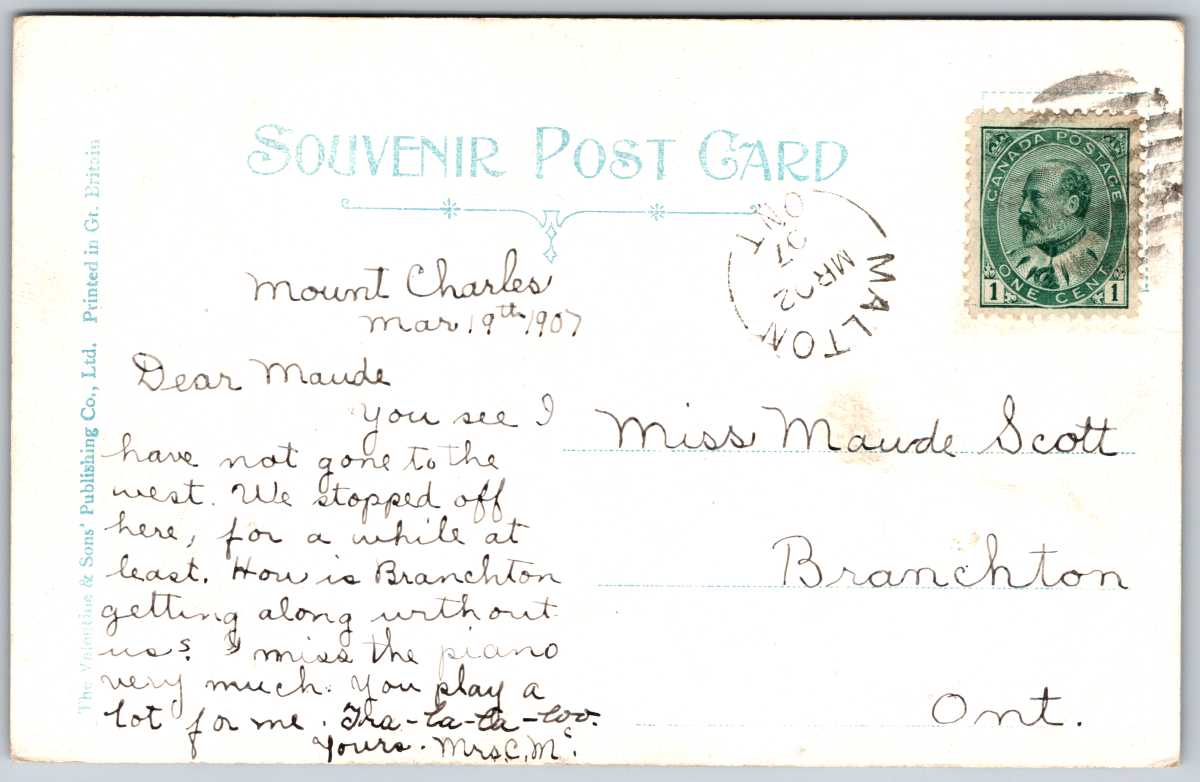 SOUVENIR POST CARD
The Valentine & Sons' Publishing Co., Ltd. Printed in Gt. Britain
CANADA POSTAGE
1 ONE CENT 1
MALTON
ONT
MR 22
07
Mount Charles
Mar 19th 1907
Dear Maude
You see I
have not gone to the
west. We stopped off
here, for a while at
least. How is Branchton
getting along without
us? I miss the piano
very much. You play a
lot for me. Tra-la-la-loo.
Yours. Mrs. C. Mc.
Miss Maude Scott
Branchton
Ont.